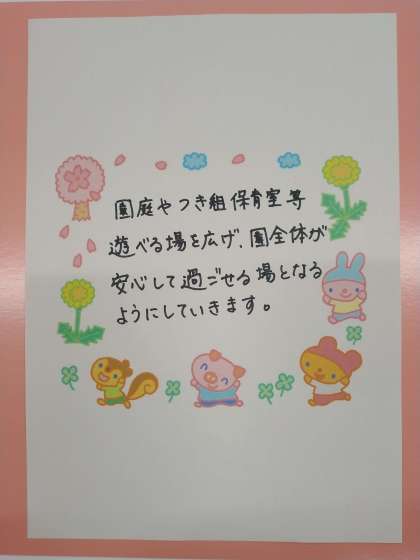 園庭やつき組保育室等
遊べる場を広げ、園全体が
安心して過ごせる場となる
ようにしていきます。